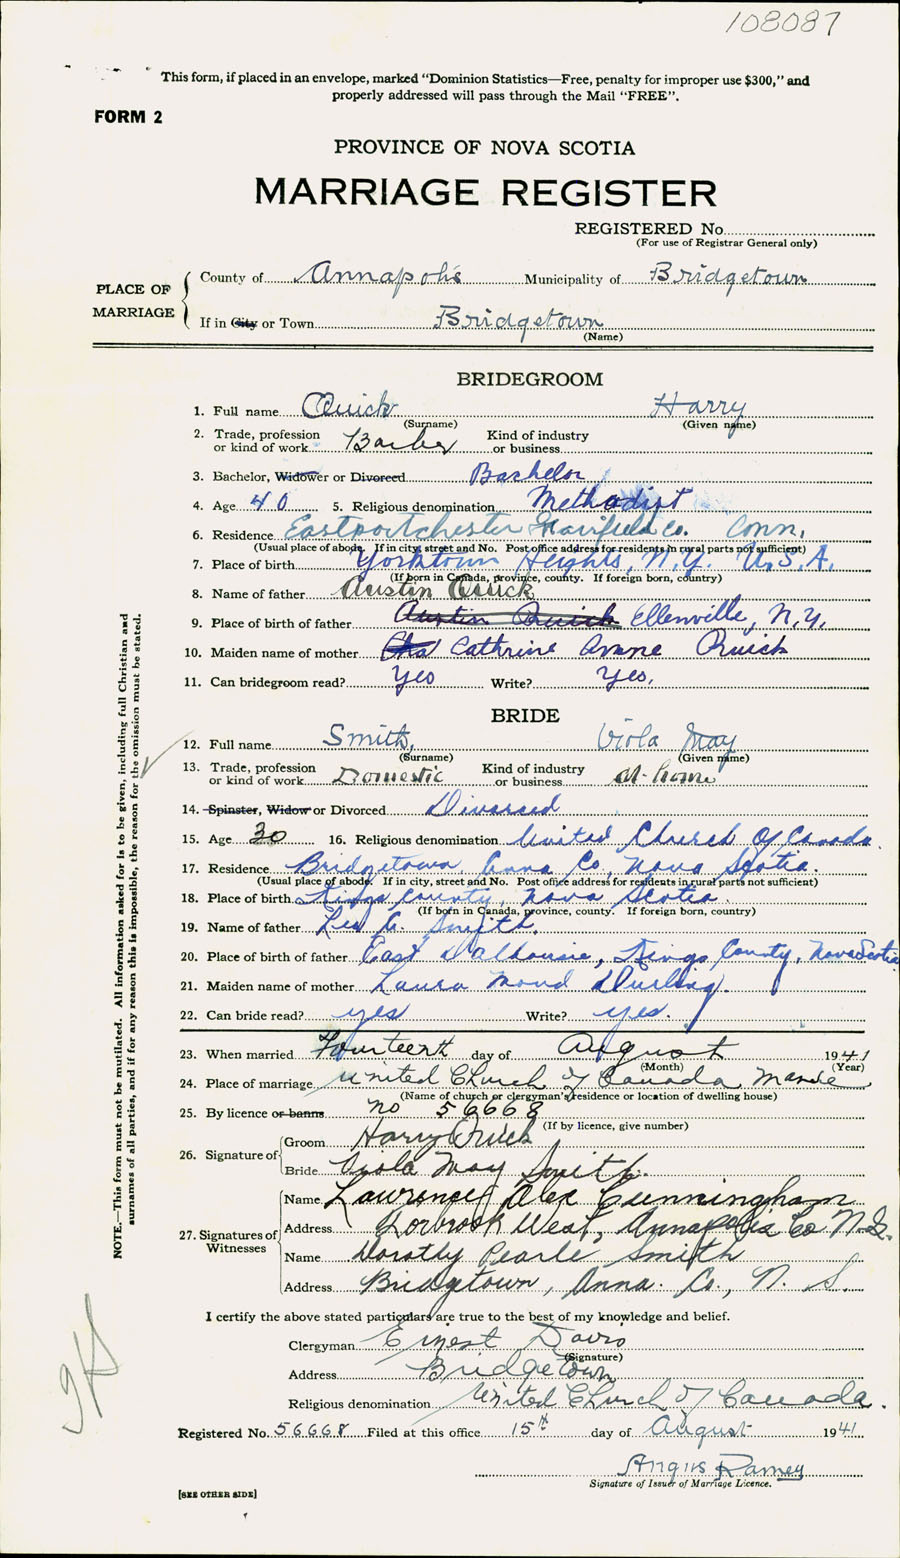 108087
This form, if placed in an envelope, marked “Dominion Statistics—Free, penalty for improper use $300,” and
properly addressed will pass through the Mail “FREE”.
FORM 2
PROVINCE OF NOVA SCOTIA
MARRIAGE REGISTER
REGISTERED No.
(For use of Registrar General only)
PLACE OF MARRIAGE
County of Annapolis Municipality of Bridgetown
If in City or Town Bridgetown
(Name)
BRIDEGROOM
1. Full name Quick Harry
(Surname) (Given name)
2. Trade, profession or kind of work Barber Kind of industry or business
3. Bachelor, Widower or Divorced Bachelor
4. Age 40 5. Religious denomination Methodist
6. Residence Eastportchester Fairfield Co. Conn.
(Usual place of abode. If in city, street and No. Post office address for residents in rural parts not sufficient)
7. Place of birth Yorktown Heights, N.Y. U.S.A.
(If born in Canada, province, county. If foreign born, country)
8. Name of father Austin Quick
9. Place of birth of father Austin Quick Ellenville, N.Y.
10. Maiden name of mother Cathrine Anne Quick
11. Can bridegroom read? Yes Write? Yes.
BRIDE
12. Full name Smith, Viola May
(Surname) (Given name)
13. Trade, profession or kind of work Domestic Kind of industry or business At home
14. Spinster, Widow or Divorced Divorced
15. Age 30 16. Religious denomination United Church Of Canada.
17. Residence Bridgetown, Anna Co, Nova Scotia.
(Usual place of abode. If in city, street and No. Post office address for residents in rural parts not sufficient)
18. Place of birth Kings County, Nova Scotia.
(If born in Canada, province, county. If foreign born, country)
19. Name of father Smith.
20. Place of birth of father East Dalhousie, Kings County, Nova Scotia
21. Maiden name of mother Laura Maud Durling.
22. Can bride read? yes Write? yes.
23. When married Fourteeth day of August 1941
(Month) (Year)
24. Place of marriage United Church of Canada Manse
(Name of church or clergyman's residence or location of dwelling house)
25. By licence or banns no 56668
(If by licence, give number)
26. Signature of
Groom Harry Quick
Bride Viola May Smith.
27. Signatures of Witnesses
Name Lawrence Alex Cunningham
Address Torbrook West, Annapolis Co N.S.
Name Dorothy Pearle Smith
Address Bridgetown, Anna. Co., N. S.
I certify the above stated particulars are true to the best of my knowledge and belief.
Clergyman Ernest Davis
(Signature)
Address Bridgetown
Religious denomination United Church of Canada.
Registered No. 56668 Filed at this office 15th day of August 1941
Angus Ramey
Signature of Issuer of Marriage Licence.
[SEE OTHER SIDE]
NOTE.—This form must not be mutilated. All information asked for is to be given, including full Christian and
surnames of all parties, and if for any reason this is impossible, the reason for the omission must be stated.